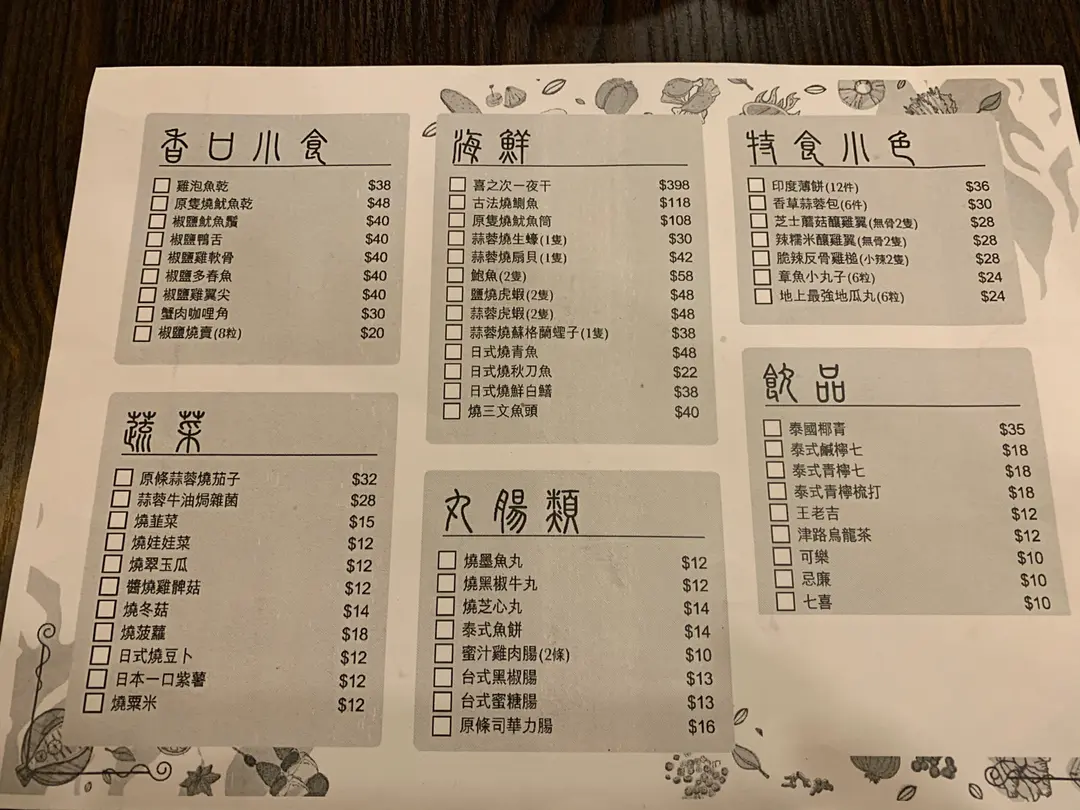 香口小食
雞泡魚乾 $38
原隻燒魷魚乾 $48
椒鹽魷魚鬚 $40
椒鹽鴨舌 $40
椒鹽雞軟骨 $40
椒鹽多春魚 $40
椒鹽雞翼尖 $40
蟹肉咖哩角 $30
椒鹽燒賣(8粒) $20
蔬菜
原條蒜蓉燒茄子 $32
蒜蓉牛油焗雜菌 $28
燒韮菜 $15
燒娃娃菜 $12
燒翠玉瓜 $12
醬燒雞髀菇 $12
燒冬菇 $14
燒菠蘿 $18
日式燒豆卜 $12
日本一口紫薯 $12
燒粟米 $12
海鮮
喜之次一夜干 $398
古法燒鰂魚 $118
原隻燒魷魚筒 $108
蒜蓉燒生蠔(1隻) $30
蒜蓉燒扇貝(1隻) $42
鮑魚(2隻) $58
鹽燒虎蝦(2隻) $48
蒜蓉虎蝦(2隻) $48
蒜蓉燒蘇格蘭蟶子(1隻) $38
日式燒青魚 $48
日式燒秋刀魚 $22
日式燒鮮白鱔 $38
燒三文魚頭 $40
丸腸類
燒墨魚丸 $12
燒黑椒牛丸 $12
燒芝心丸 $14
泰式魚餅 $14
蜜汁雞肉腸(2條) $10
台式黑椒腸 $13
台式蜜糖腸 $13
原條司華力腸 $16
特食小色
印度薄餅(12件) $36
香草蒜蓉包(6件) $30
芝士蘑菇釀雞翼(無骨2隻) $28
辣糯米釀雞翼(無骨2隻) $28
脆辣反骨雞槌(小辣2隻) $28
章魚小丸子(6粒) $24
地上最強地瓜丸(6粒) $24
飲品
泰國椰青 $35
泰式鹹檸七 $18
泰式青檸七 $18
泰式青檸梳打 $18
王老吉 $12
津路烏龍茶 $12
可樂 $10
忌廉 $10
七喜 $10